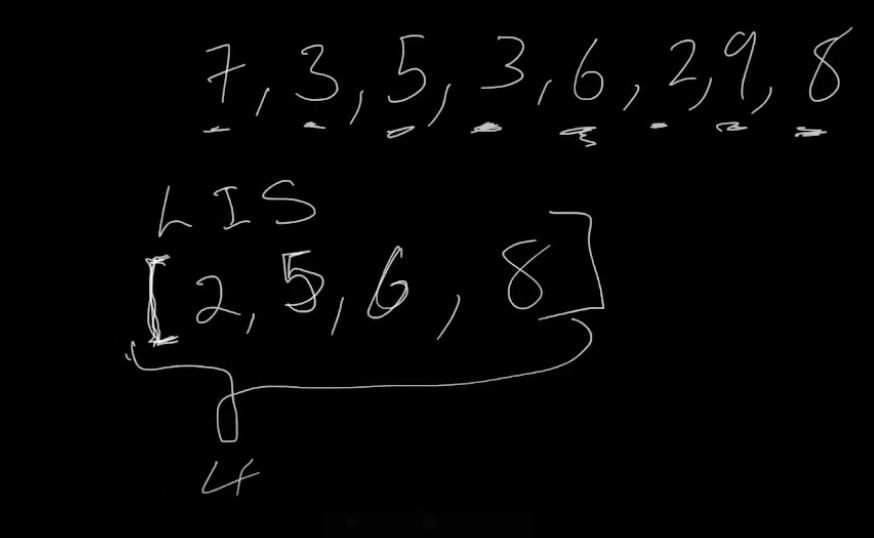 7, 3, 5, 3, 6, 2, 9, 8
LIS
[2, 5, 6, 8]
4